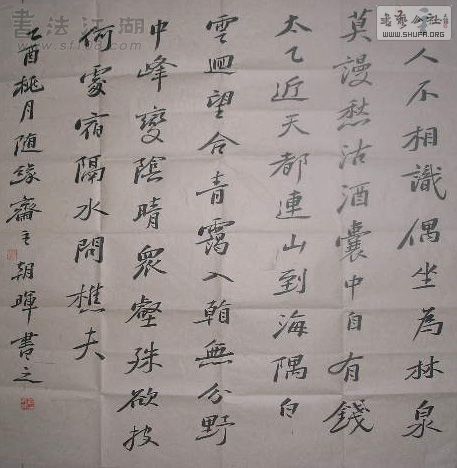 主人不相識偶坐為林泉
莫謾愁沽酒囊中自有錢
太乙近天都連山到海隅白
雲迴望合青靄入看無分野
中峰變陰晴眾壑殊欲投
何處宿隔水問樵夫
乙酉桃月随緣齋主朝暉書之
書法江湖
書藝公社
WWW.SHUFA.ORG